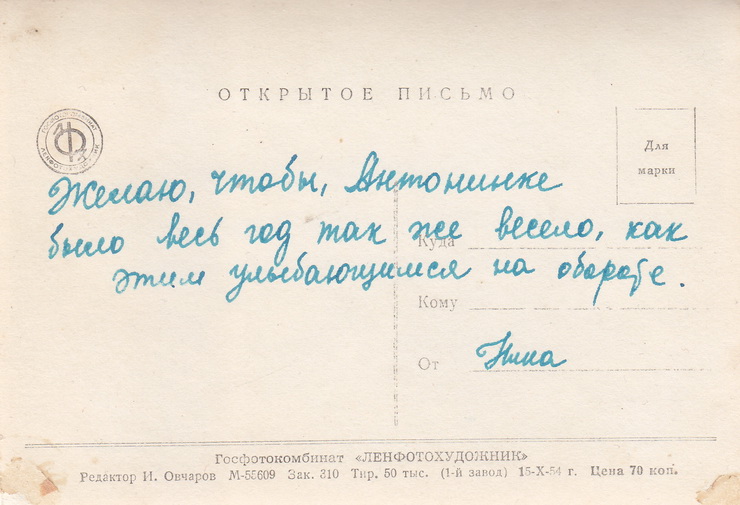 ОТКРЫТОЕ ПИСЬМО
Для
марки
Желаю, чтобы, Антонинке
было весь год так же весело, как
этим улыбающимся на обороте.
Куда
Кому
От
Госфотокомбинат «ЛЕНФОТОХУДОЖНИК»
Редактор И. Овчаров М-55609 Зак. 310 Тир. 50 тыс. (1-й завод) 15-X-54 г. Цена 70 коп.